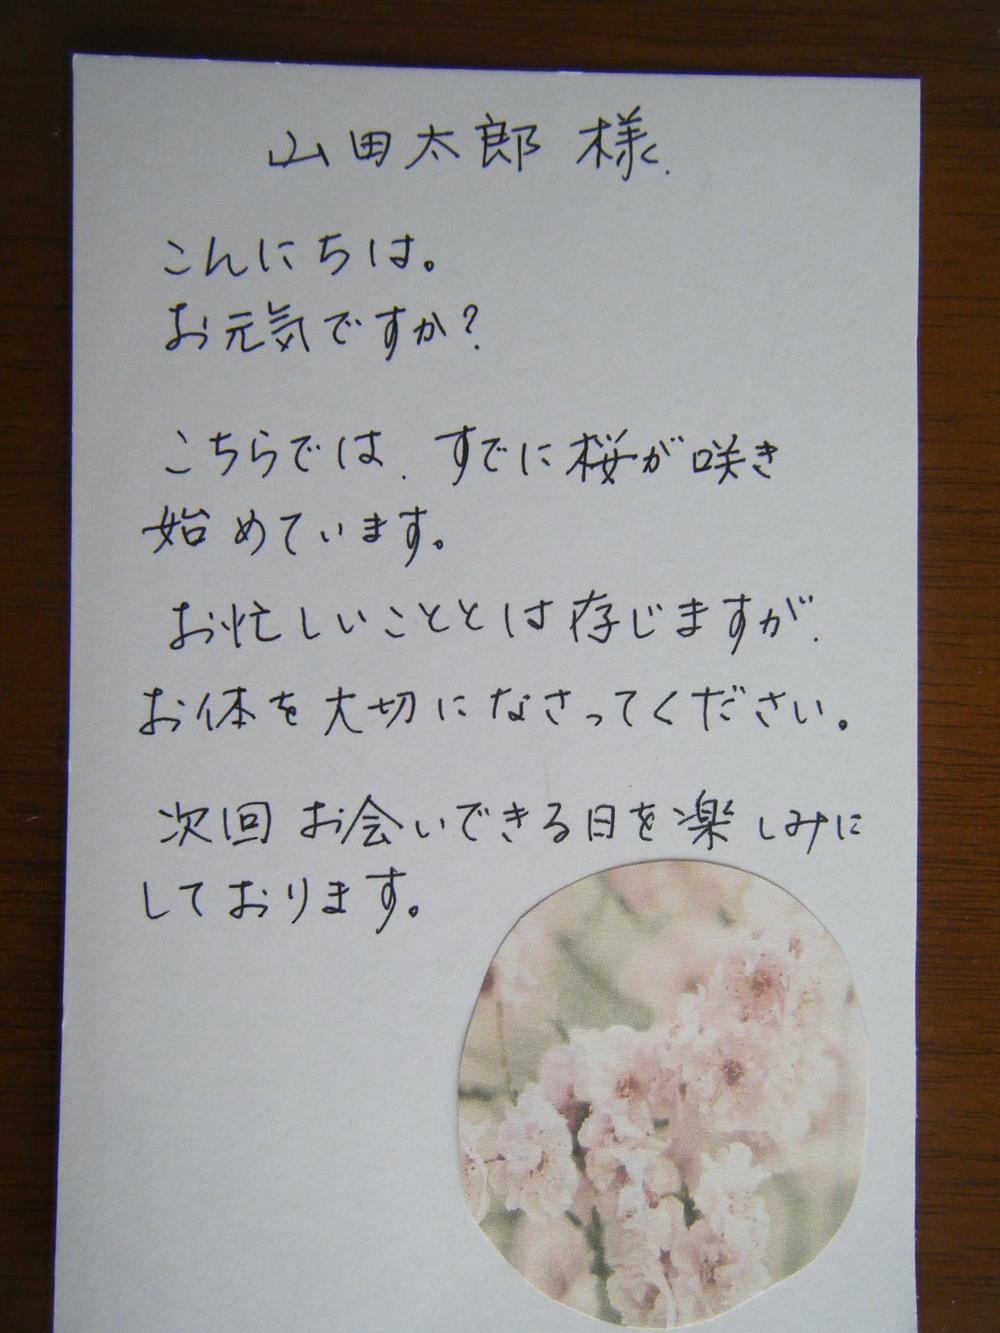 山田太郎 様
こんにちは。
お元気ですか?
こちらでは、すでに桜が咲き
始めています。
お忙しいこととは存じますが、
お体を大切になさってください。
次回お会いできる日を楽しみに
しております。